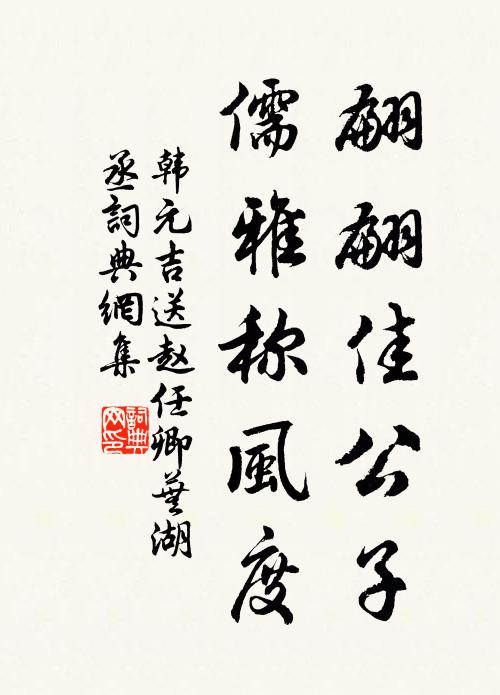 翩翩佳公子
儒雅称風度
韩元吉送赵任卿蕪湖
丞詞典網集
詞典网印